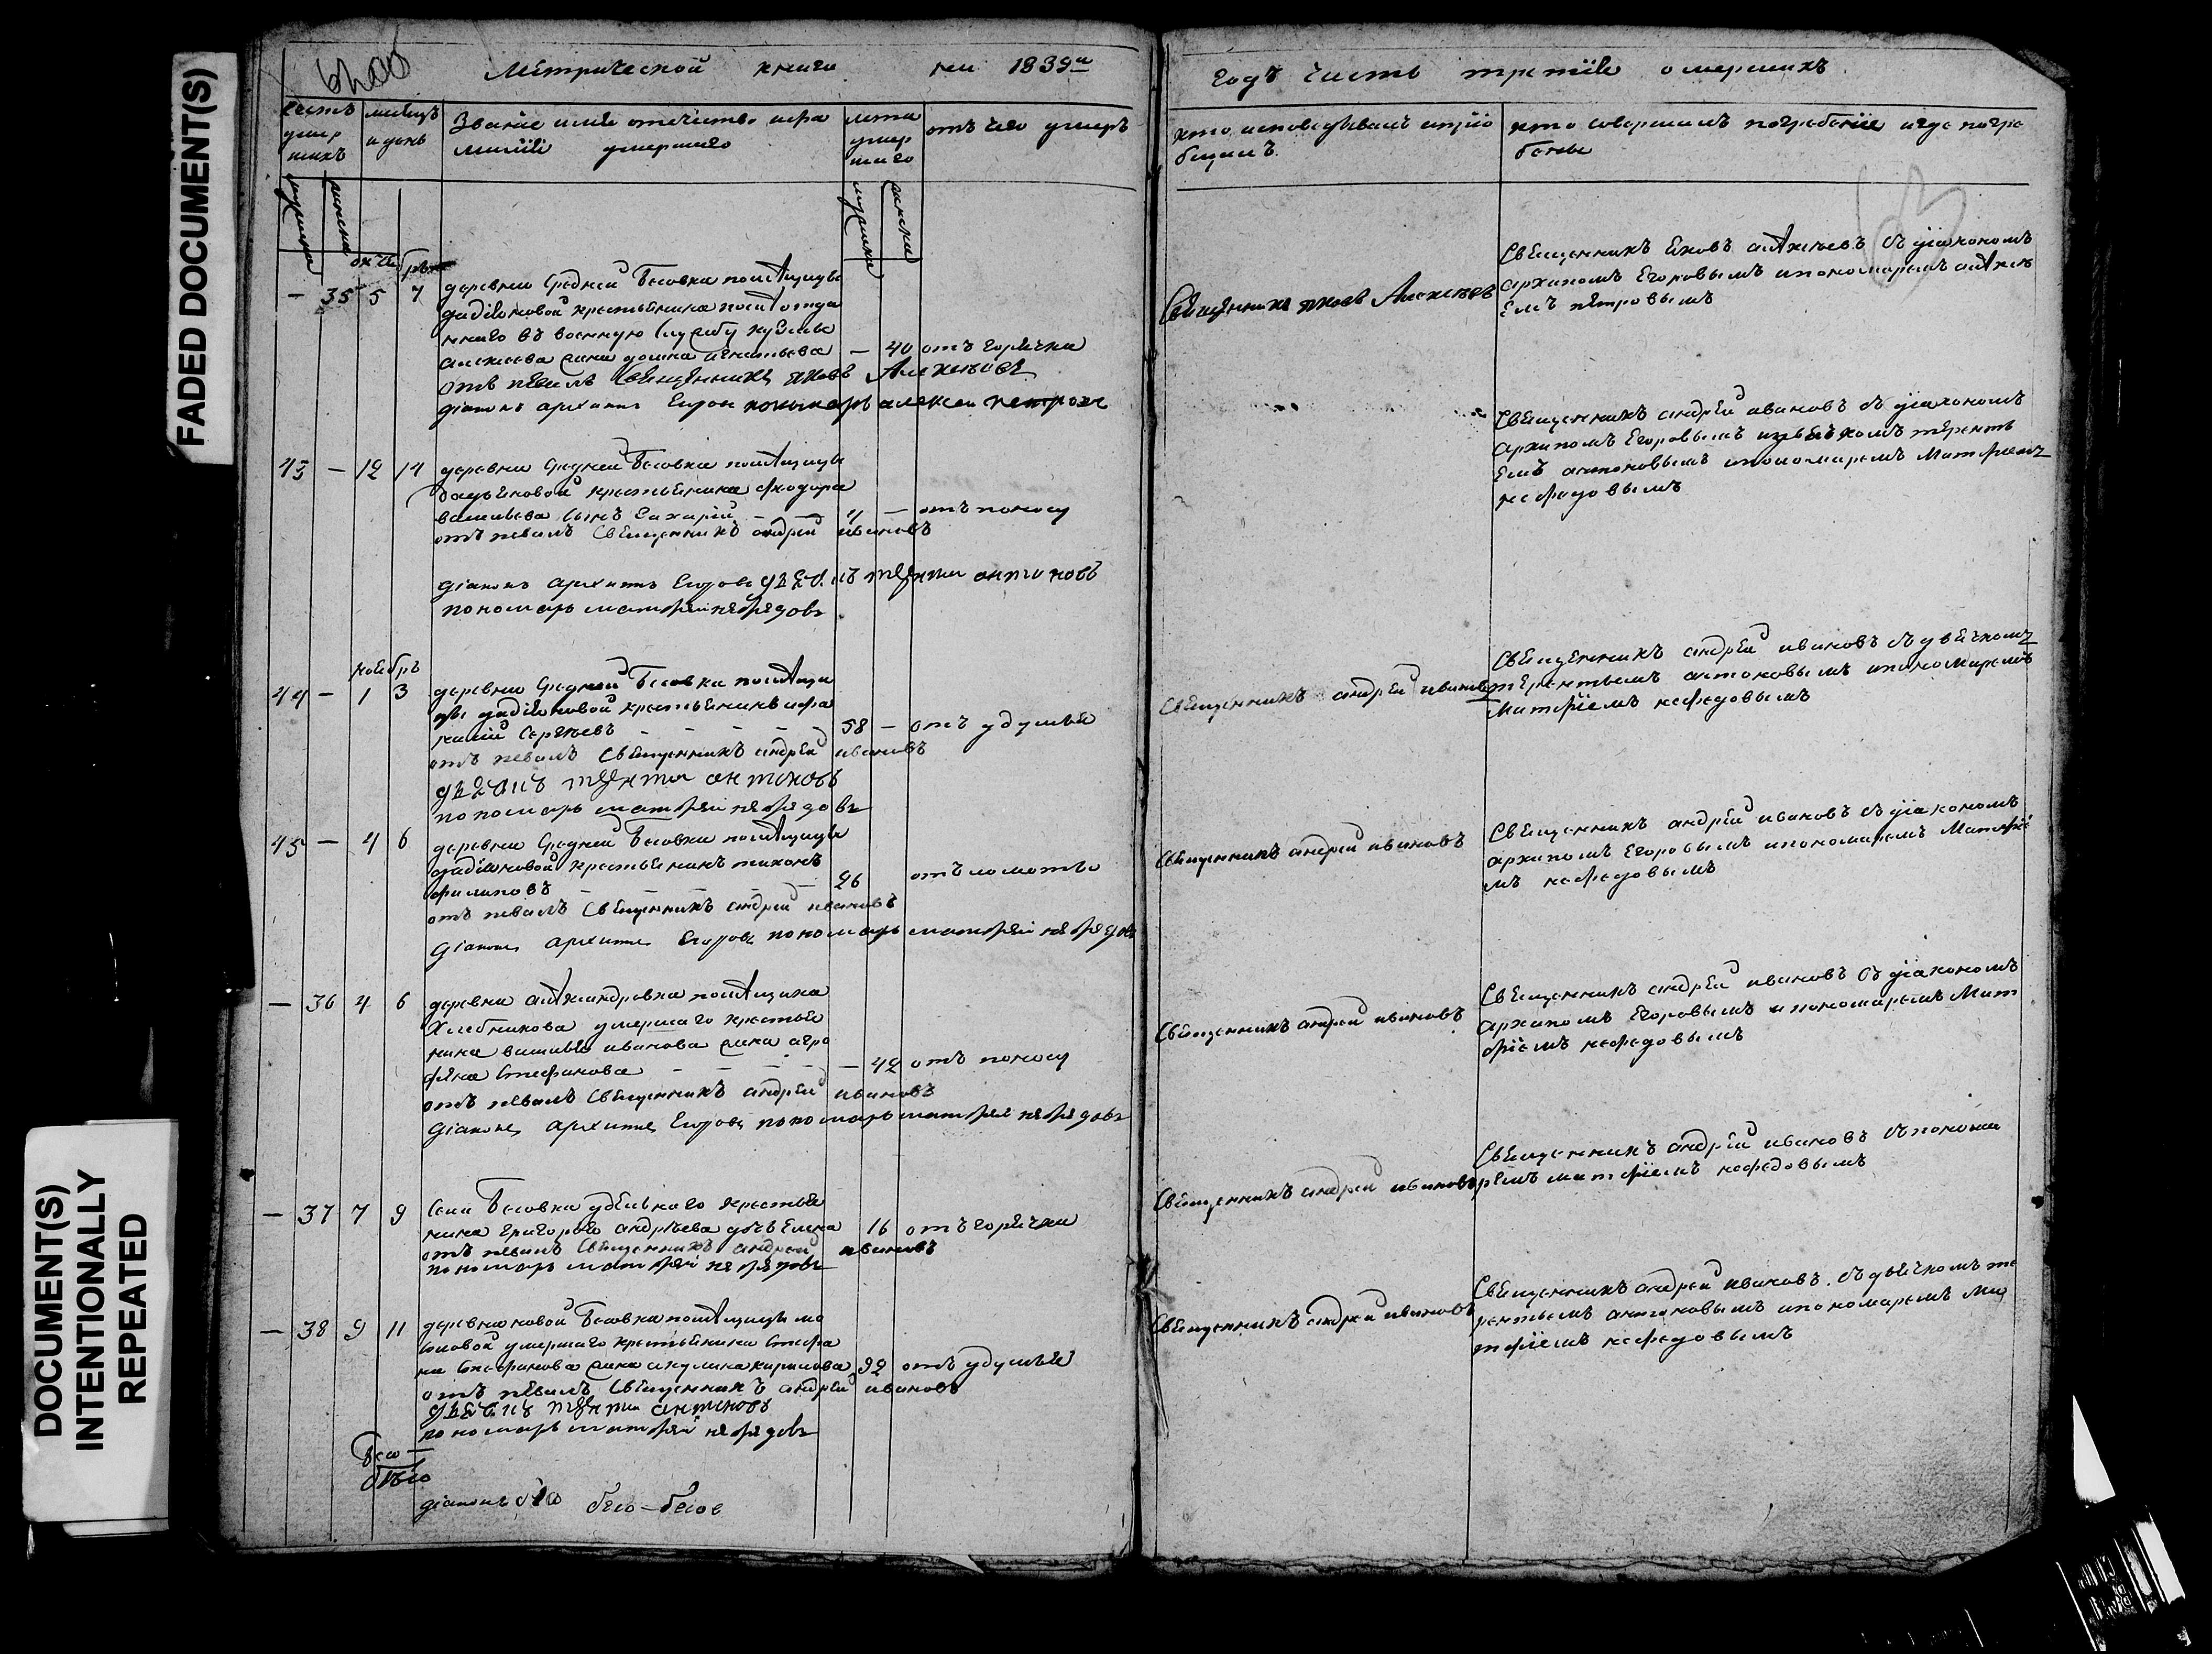 FADED DOCUMENT(S)
DOCUMENT(S)
INTENTIONALLY
REPEATED
Метрической книги на 1839й
Годъ часть третiя о умершихъ
счетъ умер шихъ
мѣсяцъ и день
Званiе имя отечество и фа
милiя умершаго
лѣта умер шаго
отъ чего умеръ
кто исповѣдывалъ и прiо
бщалъ
кто совершалъ погребенiе и где погре
бены
мужеска женска
мужска женска
октебрь
— 35 5 7 деревни Средней Бесовки помѣщицы
крестьянина
в военную службу
жена Домна Игнатьева — 40 отъ горячки
отпевалъ Священникъ Яковъ Алексеевъ
дiаконъ Архипъ Егоровъ пономарь алексей петровъ
Священникъ Яковъ Алексеевъ
Священникъ Яковъ алексеевъ съ дiакономъ
архипомъ Егоровымъ и пономаремъ алексе
емъ петровымъ
43 — 12 14 деревни Средней Бесовки помѣщицы
крестьянина Феодора
васильева сынъ Захарiй — отъ поносу
отъ певалъ Священникъ андрей ивановъ
дiаконъ архипъ Егоровъ терентий антоновъ
пономарь матфей нефедовъ
Священникъ андрей ивановъ съ дiакономъ
архипомъ Егоровымъ и дьячкомъ терентъ
емъ антоновымъ и пономаремъ Матфiемъ
нефедовымъ
ноебрь
44 — 1 3 деревни Средней Бесовки помѣщи
цы крестьянинъ
Сергеевъ — — — — 58 — отъ удушья
отъ певалъ Священникъ андрей ивановъ
терентий антоновъ
пономарь матфей нефедовъ
Священникъ андрей ивановъ
Священникъ андрей ивановъ съ дьячкомъ
терентьемъ антоновымъ и пономаремъ
Матфiемъ нефедовымъ
45 — 4 6 деревни Средней Бесовки помѣщицы
крестьянинъ тихонъ
филиповъ — — — — 26 отъ ломоты
отъ певалъ Священникъ андрей ивановъ
дiаконъ архипъ Егоровъ пономарь матфей нефедовъ
Священникъ андрей ивановъ
Священникъ андрей ивановъ съ дiакономъ
архипомъ Егоровымъ и пономаремъ Матфiе
мъ нефедовымъ
— 36 4 6 деревни алѯандровки помѣщика
Хлебникова умершаго крестья
нина василья иванова жена агро
фена Стефанова — — — — 42 отъ поносу
отъ певалъ Священникъ андрей ивановъ
дiаконъ архипъ Егоровъ пономарь матфей нефедовъ
Священникъ андрей ивановъ
Священникъ андрей ивановъ съ дiакономъ
архипомъ Егоровымъ и пономаремъ Мат
фiемъ нефедовымъ
— 37 7 9 Села Бесовки удельного крестья
нина григорья андреева дочь Елена 16 отъ горячки
отъ певалъ Священникъ андрей ивановъ
пономарь матфей нефедовъ
Священникъ андрей ивановъ
Священникъ андрей ивановъ съ понома
ремъ матфiемъ нефедовымъ
— 38 9 11 деревни новой Бесовки помѣщицы
умершаго крестьянина Стефа
на Стефанова жена акулина кирилова 92 отъ удушья
отъ певалъ Священникъ андрей ивановъ
терентий антоновъ
пономарь матфей нефедовъ
Священникъ андрей ивановъ
Священникъ андрей ивановъ съ дьячкомъ те
рентьемъ антоновымъ и пономаремъ Ма
тфiемъ нефедовымъ
дiаконъ